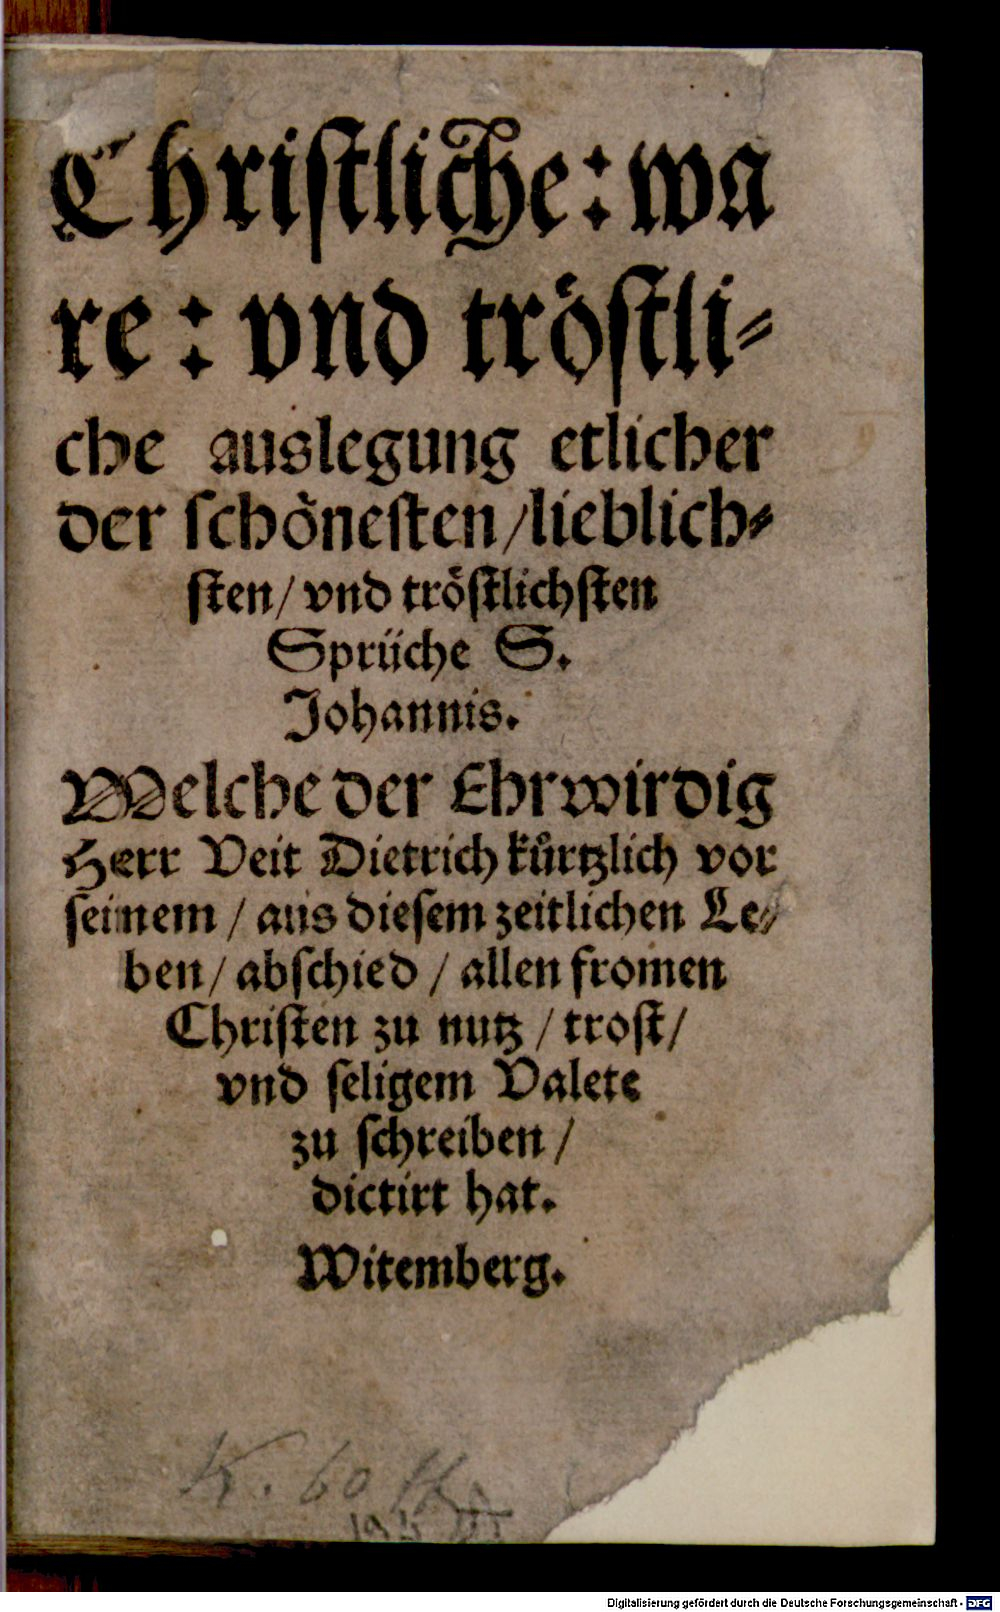 Christliche: wa
re: vnd tröstli-
che auslegung etlicher
der schönesten/lieblich-
sten/ vnd tröstlichsten
Sprüche S.
Johannis.
Welche der Ehrwirdig
Herr Veit Dietrich kůrtzlich vor
seinem / aus diesem zeitlichen Le-
ben/ abschied / allen fromen
Christen zu nutz / trost/
vnd seligem Valete
zu schreiben /
dictirt hat.
Witemberg.
K. 60
Digitalisierung gefördert durch die Deutsche Forschungsgemeinschaft - DFG